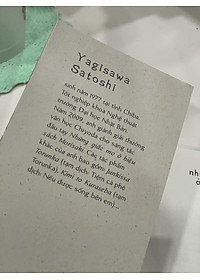 Yagisawa
Satoshi
sinh năm 1977 tại tỉnh Chiba.
Tốt nghiệp khoa Nghệ thuật
trường Đại học Nhật Bản.
Năm 2009, anh giành giải thưởng
văn học Chiyoda cho sáng tác
đầu tay Những giấc mơ ở hiệu
sách Morisaki. Các tác phẩm
khác của anh bao gồm: Junkissa
Torunka (tạm dịch: Tiệm cà phê
Torunka), Kimi to Kuraseba (tạm
dịch: Nếu được sống bên em)...
nh